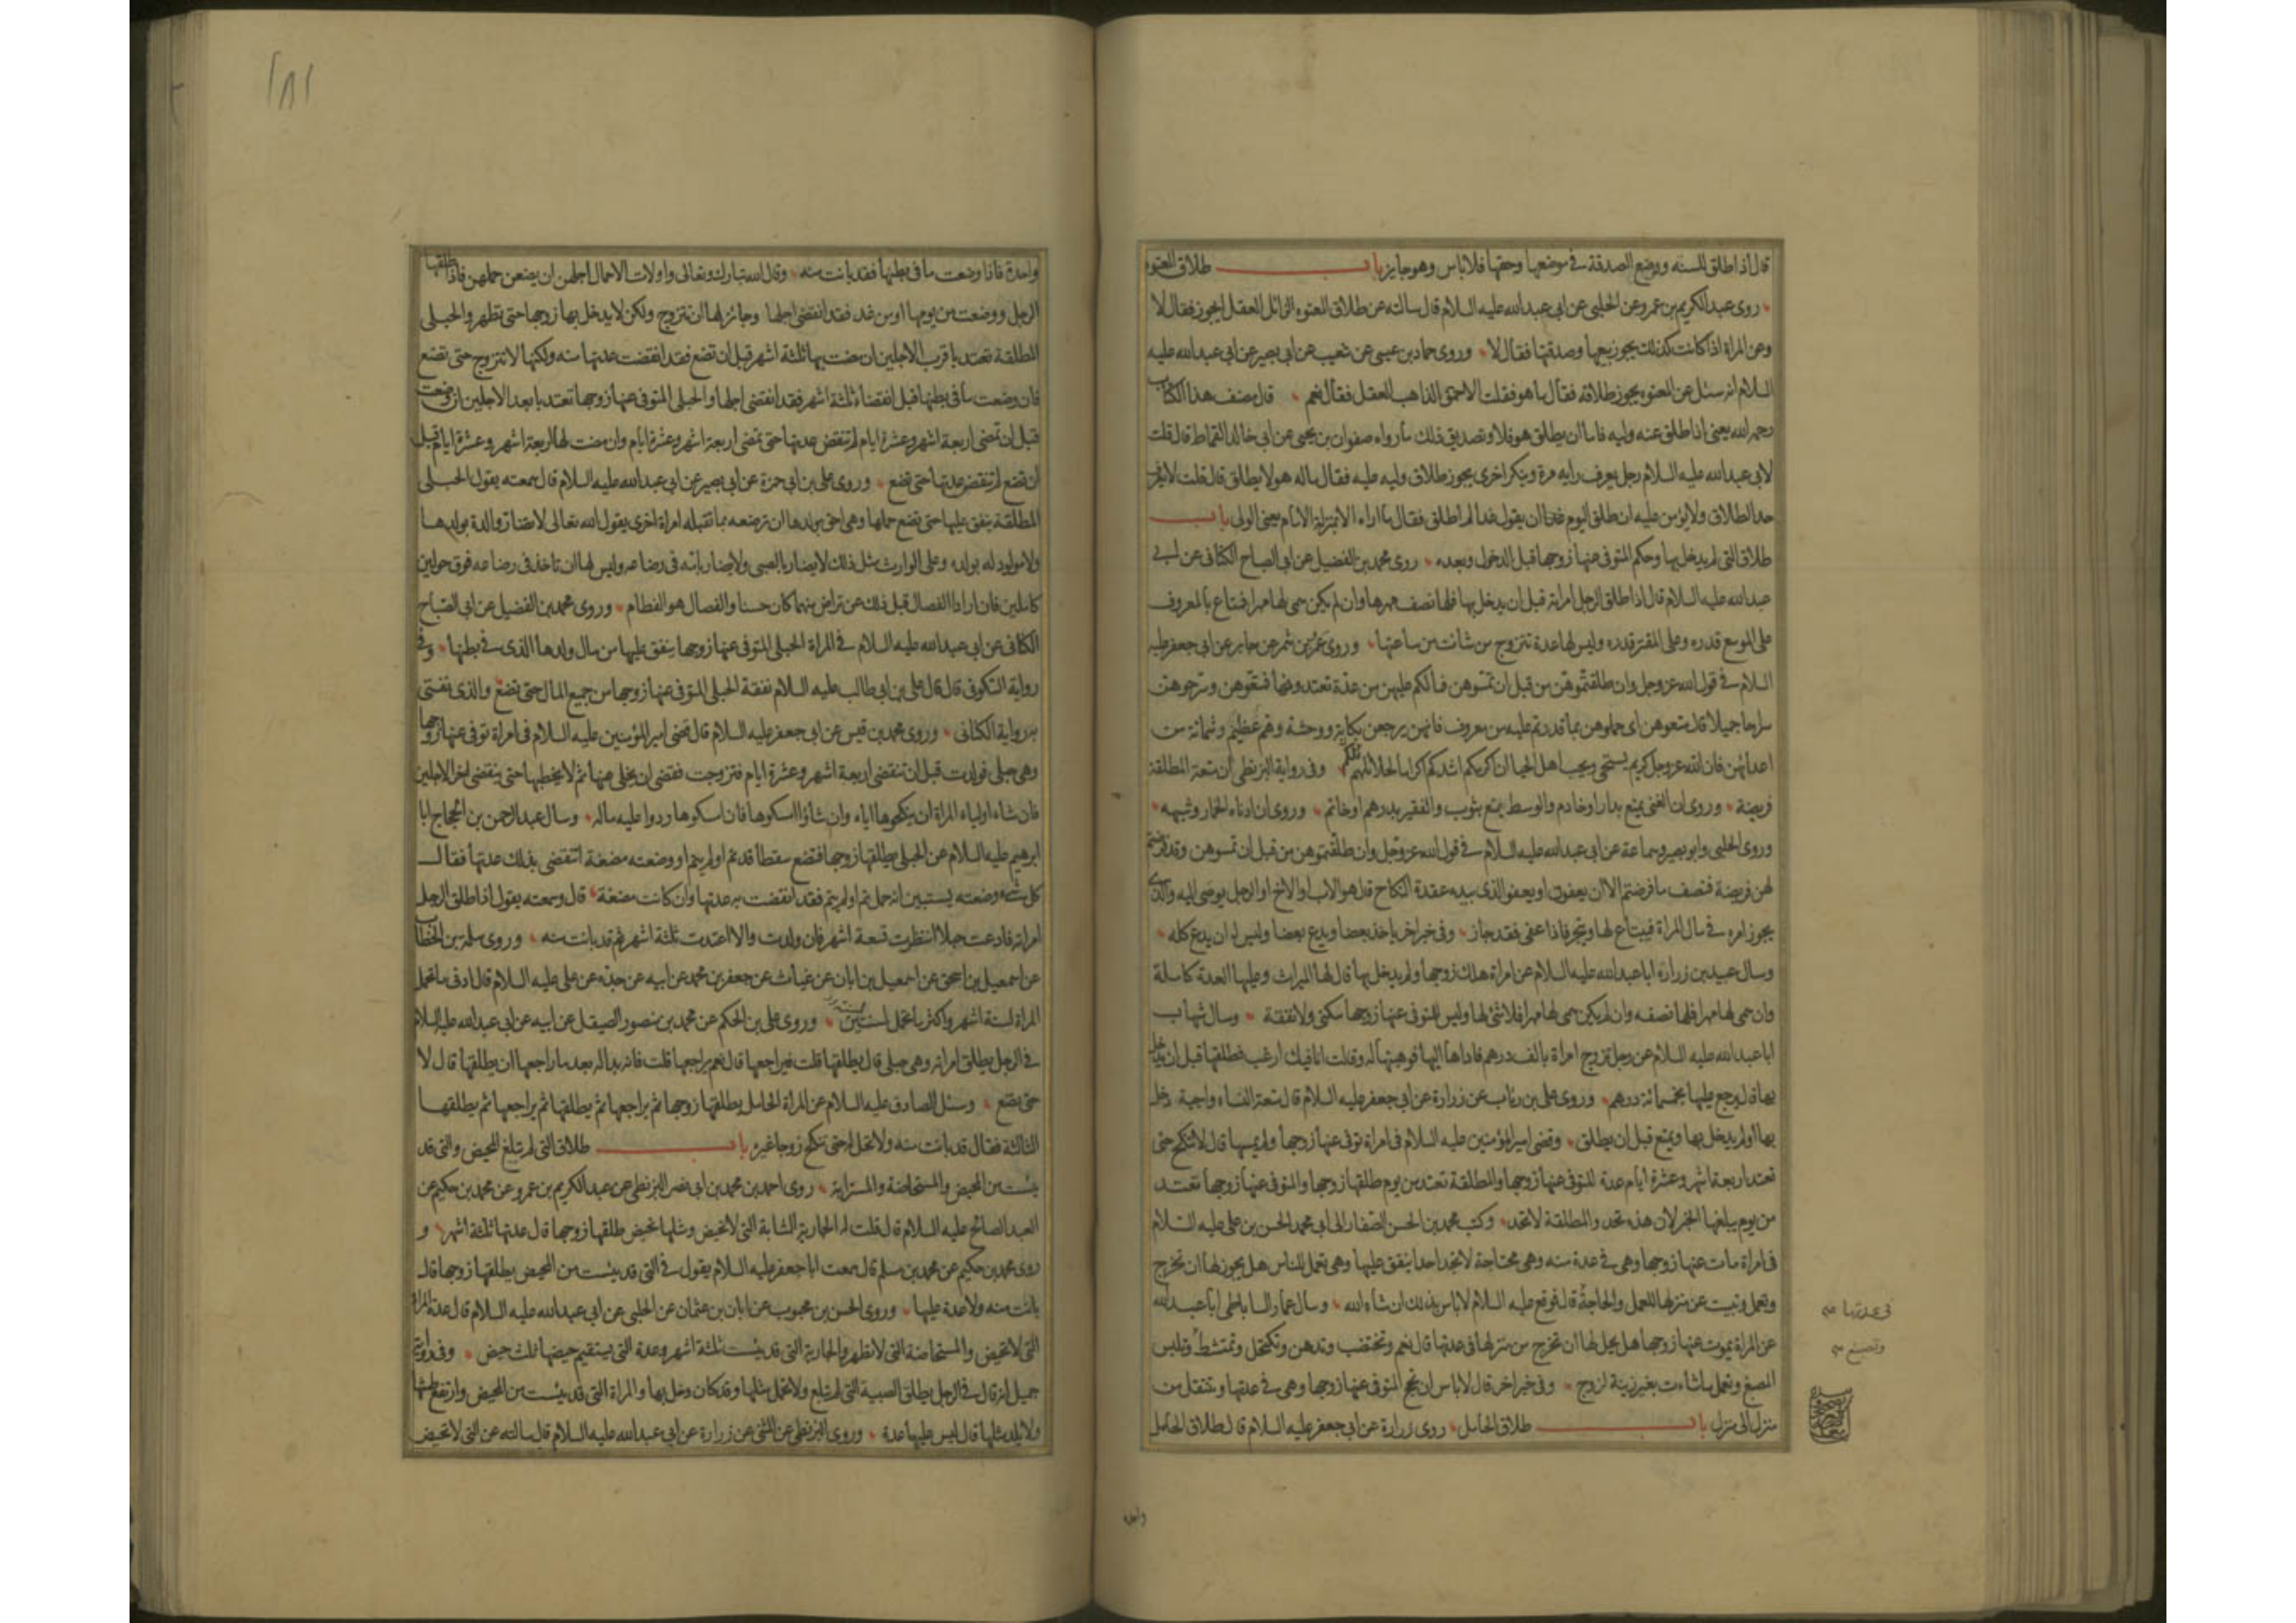 قال اذا طلق للسنه ووضع الصدقة في موضعها وحقها فلا باس وهو جايز باب طلاق المعتوه
روى عبد الكريم بن عمرو عن الحلبي عن ابي عبد الله عليه السلام قال سالته عن طلاق المعتوه الزائل العقل ايجوز فقال لا
وعن المراة اذا كانت كذلك يجوز بيعها وصدقتها فقال لا وروى حماد بن عيسى عن شعيب عن ابي بصير عن ابي عبد الله عليه
السلام انه سئل عن المعتوه يجوز طلاقه فقال ما هو فقلت الاحمق الذاهب العقل فقال نعم قال مصنف هذا الكتاب
رحمه الله يعني اذا طلق عنه وليه فاما ان يطلق هو فلا وتصديق ذلك ما رواه صفوان بن يحيى عن ابي خالد القماط قال قلت
لابي عبد الله عليه السلام رجل يعرف رايه مرة وينكر اخرى يجوز طلاق وليه عليه فقال ماله هو لا يطلق قال قلت لا يعرف
حد الطلاق ولا يؤمن عليه ان طلق اليوم ان يقول غدا لم اطلق فقال ما اراه الا بمنزلة الامام يعني الولي باب
طلاق التي لم يدخل بها وحكم المتوفى عنها زوجها قبل الدخول وبعده روى محمد بن الفضيل عن ابي الصباح الكناني عن ابي
عبد الله عليه السلام قال اذا طلق الرجل امراته قبل ان يدخل بها فلها نصف مهرها وان لم يكن سمى لها مهرا فمتاع بالمعروف
على الموسع قدره وعلى المقتر قدره وليس لها عدة تتزوج من شائت من ساعتها وروى عمرو بن شمر عن جابر عن ابي جعفر عليه
السلام في قول الله عز وجل وان طلقتموهن من قبل ان تمسوهن فما لكم عليهن من عدة تعتدونها فمتعوهن وسرحوهن
سراحا جميلا قال متعوهن اي جملوهن بما قدرتم عليه من معروف فانهن يرجعن بكابة ووحشة وهم عظيم وشماتة من
اعدائهن فان الله عز وجل كريم يستحيي ويحب اهل الحيا ان اكرمكم اشدكم اكراما لحلائلهم وفي رواية البزنطي ان متعة المطلقة
فريضة وروى ان الغني يمتع بدار او خادم والوسط يمتع بثوب والفقير بدرهم او خاتم وروى ان ادناه الخمار وشبهه
وروى الحلبي وابو بصير وسماعة عن ابي عبد الله عليه السلام في قول الله عز وجل وان طلقتموهن من قبل ان تمسوهن وقد فرضتم
لهن فريضة فنصف ما فرضتم الا ان يعفون او يعفو الذي بيده عقدة النكاح قال هو الاب او الاخ او الرجل يوصى اليه والذي
يجوز امره في مال المراة فيبتاع لها ويتجر فاذا عفى فقد جاز وفي خبر اخر ياخذ بعضا ويدع بعضا وليس له ان يدع كله
وسال عبيد بن زرارة ابا عبد الله عليه السلام عن امراة هلك زوجها ولم يدخل بها قال لها الميراث وعليها العدة كاملة
وان سمى لها مهرا فلها نصفه وان لم يكن سمى لها مهرا فلا شئ لها وليس للمتوفى عنها زوجها سكنى ولا نفقة وسال شهاب
ابا عبد الله عليه السلام عن رجل تزوج امراة بالف درهم فاداها اليها فوهبتها له وقالت انا فيك ارغب فطلقها قبل ان يدخل
بها قال يرجع عليها بخمسمائة درهم وروى علي بن رئاب عن زرارة عن ابي جعفر عليه السلام قال متعة النساء واجبة دخل
بها او لم يدخل بها ويمتع قبل ان يطلق وقضى امير المؤمنين عليه السلام في امراة توفى عنها زوجها ولم يمسها قال لا تنكح حتى
تعتد اربعة اشهر وعشرة ايام عدة المتوفى عنها زوجها والمطلقة تعتد من يوم طلقها زوجها والمتوفى عنها زوجها تعتد
من يوم يبلغها الخبر لان هذه تحد والمطلقة لا تحد وكتب محمد بن الحسن الصفار الى ابي محمد الحسن بن علي عليه السلام
في امراة مات عنها زوجها وهي في عدة منه وهي محتاجة لا تجد احدا ينفق عليها وهي تعمل للناس هل يجوز لها ان تخرج
وتعمل وتبيت عن منزلها للعمل والحاجة قال فوقع عليه السلام لا باس بذلك ان شاء الله وسال عمار الساباطي ابا عبد الله
عن المراة يموت عنها زوجها هل يحل لها ان تخرج من منزلها في عدتها قال نعم وتختضب وتدهن وتكتحل وتمتشط وتلبس
المصبغ وتعمل ما شاءت بغير زينة لزوج وفي خبر اخر قال لا باس ان تحج المتوفى عنها زوجها وهي في عدتها وتنتقل من
منزل الى منزل باب طلاق الحامل روى زرارة عن ابي جعفر عليه السلام قال طلاق الحامل
في عدتها
وتصنع
واحدة
١٨١
واحدة فاذا وضعت ما في بطنها فقد بانت منه وقال الله تبارك وتعالى واولات الاحمال اجلهن ان يضعن حملهن فاذا طلقها
الرجل ووضعت من يومها او من غد فقد انقضى اجلها وجائز لها ان تتزوج ولكن لا يدخل بها زوجها حتى تطهر والحبلى
المطلقة تعتد باقرب الاجلين ان مضت بها ثلثة اشهر قبل ان تضع فقد انقضت عدتها منه ولكنها لا تتزوج حتى تضع
فان وضعت ما في بطنها قبل انقضاء ثلثة اشهر فقد انقضى اجلها والحبلى المتوفى عنها زوجها تعتد بابعد الاجلين ان وضعت
قبل ان تمضي اربعة اشهر وعشرة ايام لم تنقض عدتها حتى تمضي اربعة اشهر وعشرة ايام وان مضت لها اربعة اشهر وعشرة ايام قبل
ان تضع لم تنقض عدتها حتى تضع وروى علي بن ابي حمزة عن ابي بصير عن ابي عبد الله عليه السلام قال سمعته يقول الحبلى
المطلقة ينفق عليها حتى تضع حملها وهي احق بولدها ان ترضعه بما تقبله امراة اخرى يقول الله تعالى لا تضار والدة بولدها
ولا مولود له بولده وعلى الوارث مثل ذلك لا يضار بالصبي ولا يضار بامه في رضاعه وليس لها ان تاخذ في رضاعه فوق حولين
كاملين فان ارادا الفصال قبل ذلك عن تراض منهما كان حسنا والفصال هو الفطام وروى محمد بن الفضيل عن ابي الصباح
الكناني عن ابي عبد الله عليه السلام في المراة الحبلى المتوفى عنها زوجها ينفق عليها من مال ولدها الذي في بطنها وفي
رواية السكوني قال قال علي بن ابي طالب عليه السلام نفقة الحبلى المتوفى عنها زوجها من جميع المال حتى تضع والذي نفتي
به رواية الكناني وروى محمد بن قيس عن ابي جعفر عليه السلام قال قضى امير المؤمنين عليه السلام في امراة توفى عنها زوجها
وهي حبلى فولدت قبل ان تنقضي اربعة اشهر وعشرة ايام فتزوجت فقضى ان يخلي عنها ثم لا يخطبها حتى ينقضي اخر الاجلين
فان شاء اولياء المراة انكحوها اياه وان شاؤا امسكوها فان امسكوها ردوا عليه ماله وسال عبد الرحمن بن الحجاج ابا
ابرهيم عليه السلام عن الحبلى يطلقها زوجها فتضع سقطا قد تم او لم يتم او وضعته مضغة اتنقضي بذلك عدتها فقال
كل شئ وضعته يستبين انه حمل تم او لم يتم فقد انقضت به عدتها وان كانت مضغة قال وسمعته يقول اذا طلق الرجل
امراته فادعت حبلا انتظرت تسعة اشهر فان ولدت والا اعتدت ثلثة اشهر ثم قد بانت منه وروى سلمة بن الخطاب
عن اسمعيل بن اسحق عن اسمعيل بن ابان عن غياث عن جعفر بن محمد عن ابيه عن جده عن علي عليه السلام قال ادنى ما تحمل
المراة لستة اشهر واكثر ما تحمل لسنتين وروى علي بن الحكم عن محمد بن منصور الصيقل عن ابيه عن ابي عبد الله عليه السلام
في الرجل يطلق امراته وهي حبلى قال يطلقها قلت فيراجعها قال نعم يراجعها قلت فانه بدا له بعد ما راجعها ان يطلقها قال لا
حتى تضع وسئل الصادق عليه السلام عن المراة الحامل يطلقها زوجها ثم يراجعها ثم يطلقها ثم يراجعها ثم يطلقها
الثالثة فقال قد بانت منه ولا تحل له حتى تنكح زوجا غيره باب طلاق التي لم تبلغ المحيض والتي قد
يئست من المحيض والمستحاضة والمسترابة روى احمد بن محمد بن ابي نصر البزنطي عن عبد الكريم بن عمرو عن محمد بن حكيم عن
العبد الصالح عليه السلام قال قلت له الجارية الشابة التي لا تحيض ومثلها تحيض طلقها زوجها قال عدتها ثلثة اشهر و
روى محمد بن حكيم عن محمد بن مسلم قال سمعت ابا جعفر عليه السلام يقول في التي قد يئست من المحيض يطلقها زوجها قال
بانت منه ولا عدة عليها وروى الحسن بن محبوب عن ابان بن عثمان عن الحلبي عن ابي عبد الله عليه السلام قال عدة المراة
التي لا تحيض والمستحاضة التي لا تطهر والجارية التي قد يئست ثلثة اشهر وعدة التي يستقيم حيضها ثلث حيض وفي رواية
جميل انه قال في الرجل يطلق الصبية التي لم تبلغ ولا تحمل مثلها وقد كان دخل بها والمراة التي قد يئست من المحيض وارتفع طمثها
ولا يلد مثلها قال ليس عليها عدة وروى البزنطي عن المثنى عن زرارة عن ابي عبد الله عليه السلام قال سالته عن التي لا تحيض